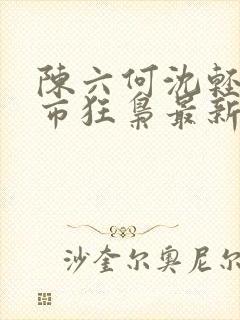 陳六何沈軽
市狂梟最新
沙奎尔奥尼尔